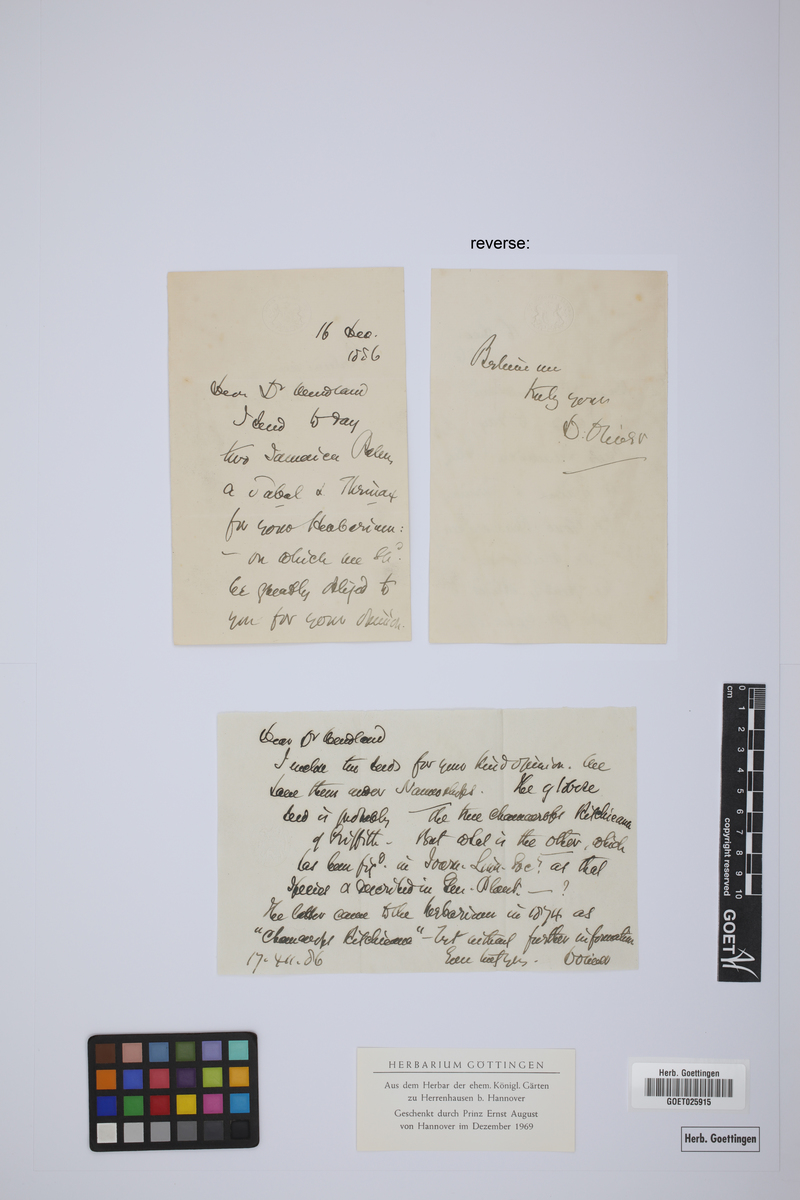 reverse:
16 Dec.
1886
Dear Dr Wendland
I send to day
two Jamaica Palms
a Sabal & Thrinax
for your Herbarium:
— on which we shd.
be greatly obliged to
you for your opinion.
Believe me
truly yours
D. Oliver
Dear Dr Wendland
I enclose two seeds for your kind opinion. We
have them under Nannorhops. The globose
seed is probably — the true Chamaerops Ritchieana
of Griffith. But what is the other, which
has been figd. in Journ. Linn. Soc. as that
species & described in Gen. Plant — ?
The latter came to the herbarium in 1874 as
"Chamaerops Ritchieana" — but without further information
17.XII.86
Ever truly yrs. D Oliver
cm 0 1 2 3 4 5 6 7 8 9 10
copyright reserved
GOET
HERBARIUM GÖTTINGEN
Aus dem Herbar der ehem. Königl. Gärten
zu Herrenhausen b. Hannover
Geschenkt durch Prinz Ernst August
von Hannover im Dezember 1969
Herb. Goettingen
GOET025915
Herb. Goettingen